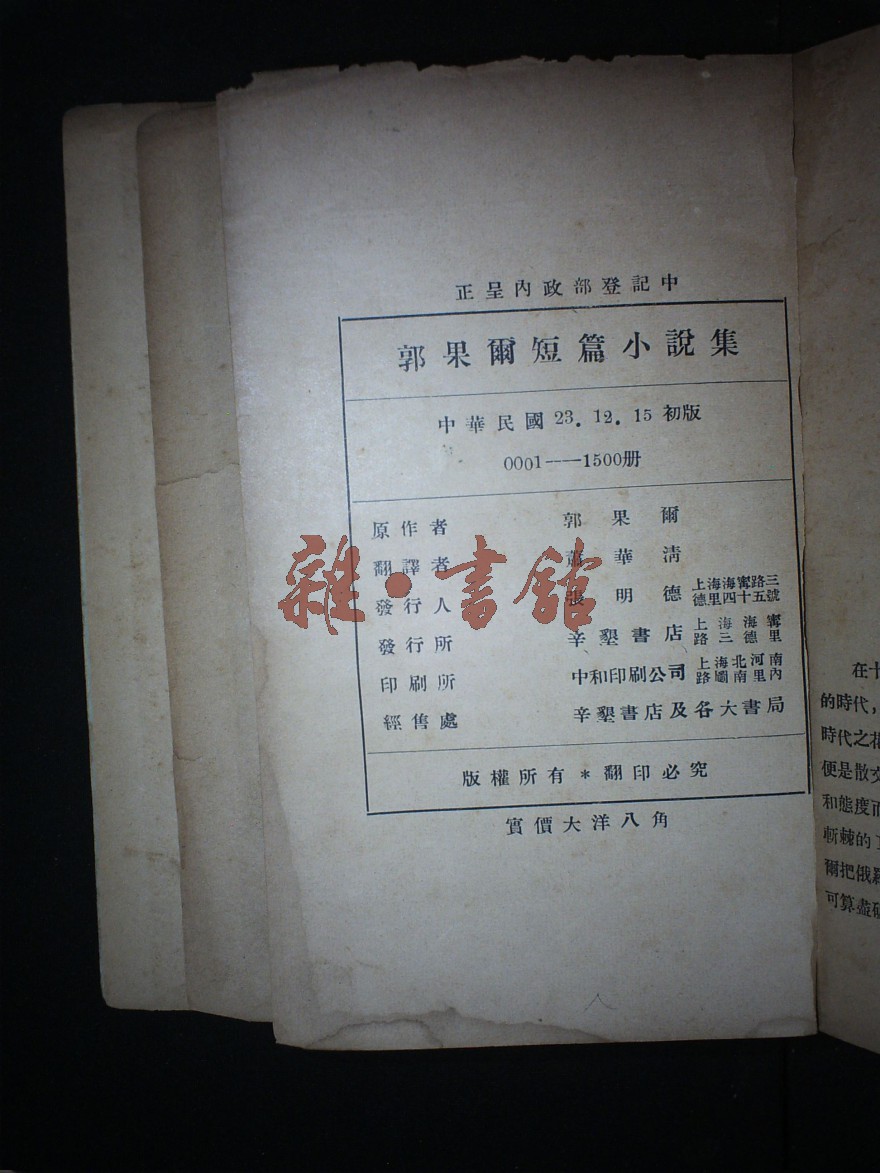 正呈內政部登記中
郭果爾短篇小說集
中華民國23.12.15初版
0001——1500册
原作者 郭果爾
翻譯者 蕭華淸
發行人 張明德 上海海甯路三德里四十五號
發行所 辛墾書店 上海海甯路三德里
印刷所 中和印刷公司 上海北河南路 南里內
經售處 辛墾書店及各大書局
版權所有*翻印必究
實價大洋八角
雜·書館
在十
的時代，
時代之花
便是散文
和態度而
斬棘的
爾把俄羅
可算盡